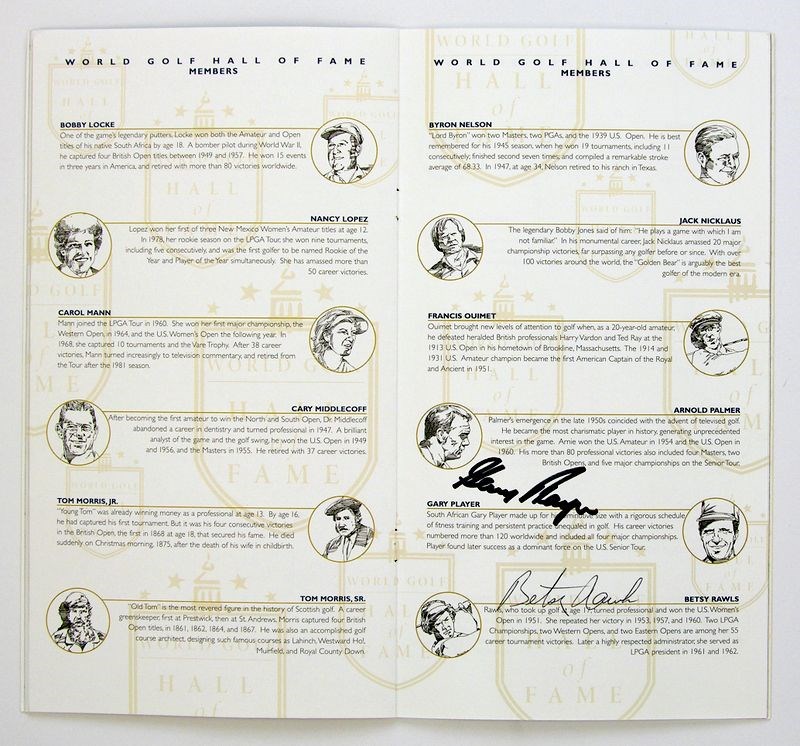 WORLD GOLF HALL OF FAME
MEMBERS
BOBBY LOCKE
One of the game's legendary putters, Locke won both the Amateur and Open
titles of his native South Africa by age 18. A bomber pilot during World War II,
he captured four British Open titles between 1949 and 1957. He won 15 events
in three years in America, and retired with more than 80 victories worldwide.
NANCY LOPEZ
Lopez won her first of three New Mexico Women's Amateur titles at age 12.
In 1978, her rookie season on the LPGA Tour, she won nine tournaments,
including five consecutively, and was the first golfer to be named Rookie of the
Year and Player of the Year simultaneously. She has amassed more than
50 career victories.
CAROL MANN
Mann joined the LPGA Tour in 1960. She won her first major championship, the
Western Open, in 1964, and the U.S. Women's Open the following year. In
1968, she captured 10 tournaments and the Vare Trophy. After 38 career
victories, Mann turned increasingly to television commentary, and retired from
the Tour after the 1981 season.
CARY MIDDLECOFF
After becoming the first amateur to win the North and South Open, Dr. Middlecoff
abandoned a career in dentistry and turned professional in 1947. A brilliant
analyst of the game and the golf swing, he won the U.S. Open in 1949
and 1956, and the Masters in 1955. He retired with 37 career victories.
TOM MORRIS, JR.
"Young Tom" was already winning money as a professional at age 13. By age 16,
he had captured his first tournament. But it was his four consecutive victories
in the British Open, the first in 1868 at age 18, that secured his fame. He died
suddenly on Christmas morning, 1875, after the death of his wife in childbirth.
TOM MORRIS, SR.
"Old Tom" is the most revered figure in the history of Scottish golf. A career
greenskeeper, first at Prestwick, then at St. Andrews, Morris captured four British
Open titles, in 1861, 1862, 1864, and 1867. He was also an accomplished golf
course architect, designing such famous courses as Lahinch, Westward Ho!,
Muirfield, and Royal County Down.
WORLD GOLF HALL OF FAME
MEMBERS
BYRON NELSON
"Lord Byron" won two Masters, two PGAs, and the 1939 U.S. Open. He is best
remembered for his 1945 season, when he won 19 tournaments, including 11
consecutively; finished second seven times; and compiled a remarkable stroke
average of 68.33. In 1947, at age 34, Nelson retired to his ranch in Texas.
JACK NICKLAUS
The legendary Bobby Jones said of him: "He plays a game with which I am
not familiar." In his monumental career, Jack Nicklaus amassed 20 major
championship victories, far surpassing any golfer before or since. With over
100 victories around the world, the "Golden Bear" is arguably the best
golfer of the modern era.
FRANCIS OUIMET
Ouimet brought new levels of attention to golf when, as a 20-year-old amateur,
he defeated heralded British professionals Harry Vardon and Ted Ray at the
1913 U.S. Open in his hometown of Brookline, Massachusetts. The 1914 and
1931 U.S. Amateur champion became the first American Captain of the Royal
and Ancient in 1951.
ARNOLD PALMER
Palmer's emergence in the late 1950s coincided with the advent of televised golf.
He became the most charismatic player in history, generating unprecedented
interest in the game. Arnie won the U.S. Amateur in 1954 and the U.S. Open in
1960. His more than 80 professional victories also included four Masters, two
British Opens, and five major championships on the Senior Tour.
Gary Player
GARY PLAYER
South African Gary Player made up for his diminutive size with a rigorous schedule
of fitness training and persistent practice unequaled in golf. His career victories
numbered more than 120 worldwide and included all four major championships.
Player found later success as a dominant force on the U.S. Senior Tour.
Betsy Rawls
BETSY RAWLS
Rawls, who took up golf at age 17, turned professional and won the U.S. Women's
Open in 1951. She repeated her victory in 1953, 1957, and 1960. Two LPGA
Championships, two Western Opens, and two Eastern Opens are among her 55
career tournament victories. Later a highly respected administrator, she served as
LPGA president in 1961 and 1962.